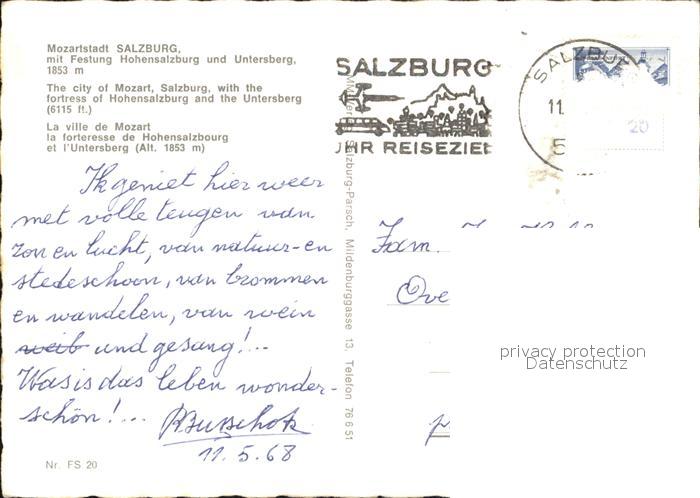 Mozartstadt SALZBURG,
mit Festung Hohensalzburg und Untersberg,
1853 m
The city of Mozart, Salzburg, with the
fortress of Hohensalzburg and the Untersberg
(6115 ft.)
La ville de Mozart
la forteresse de Hohensalzbourg
et l'Untersberg (Alt. 1853 m)
SALZBURG
IHR REISEZIEL
SALZBU
11.
5
20
Ik geniet hier weer
met volle teugen van
zon en lucht, van natuur- en
stedeschoon, van brommen
en wandelen, van wein
weib und gesang!..
Was is das leben wonder-
schön!...
11.5.68
Fam.
Ove
Salzburg-Parsch, Mildenburggasse 13, Telefon 76 6 51
privacy protection
Datenschutz
Nr. FS 20